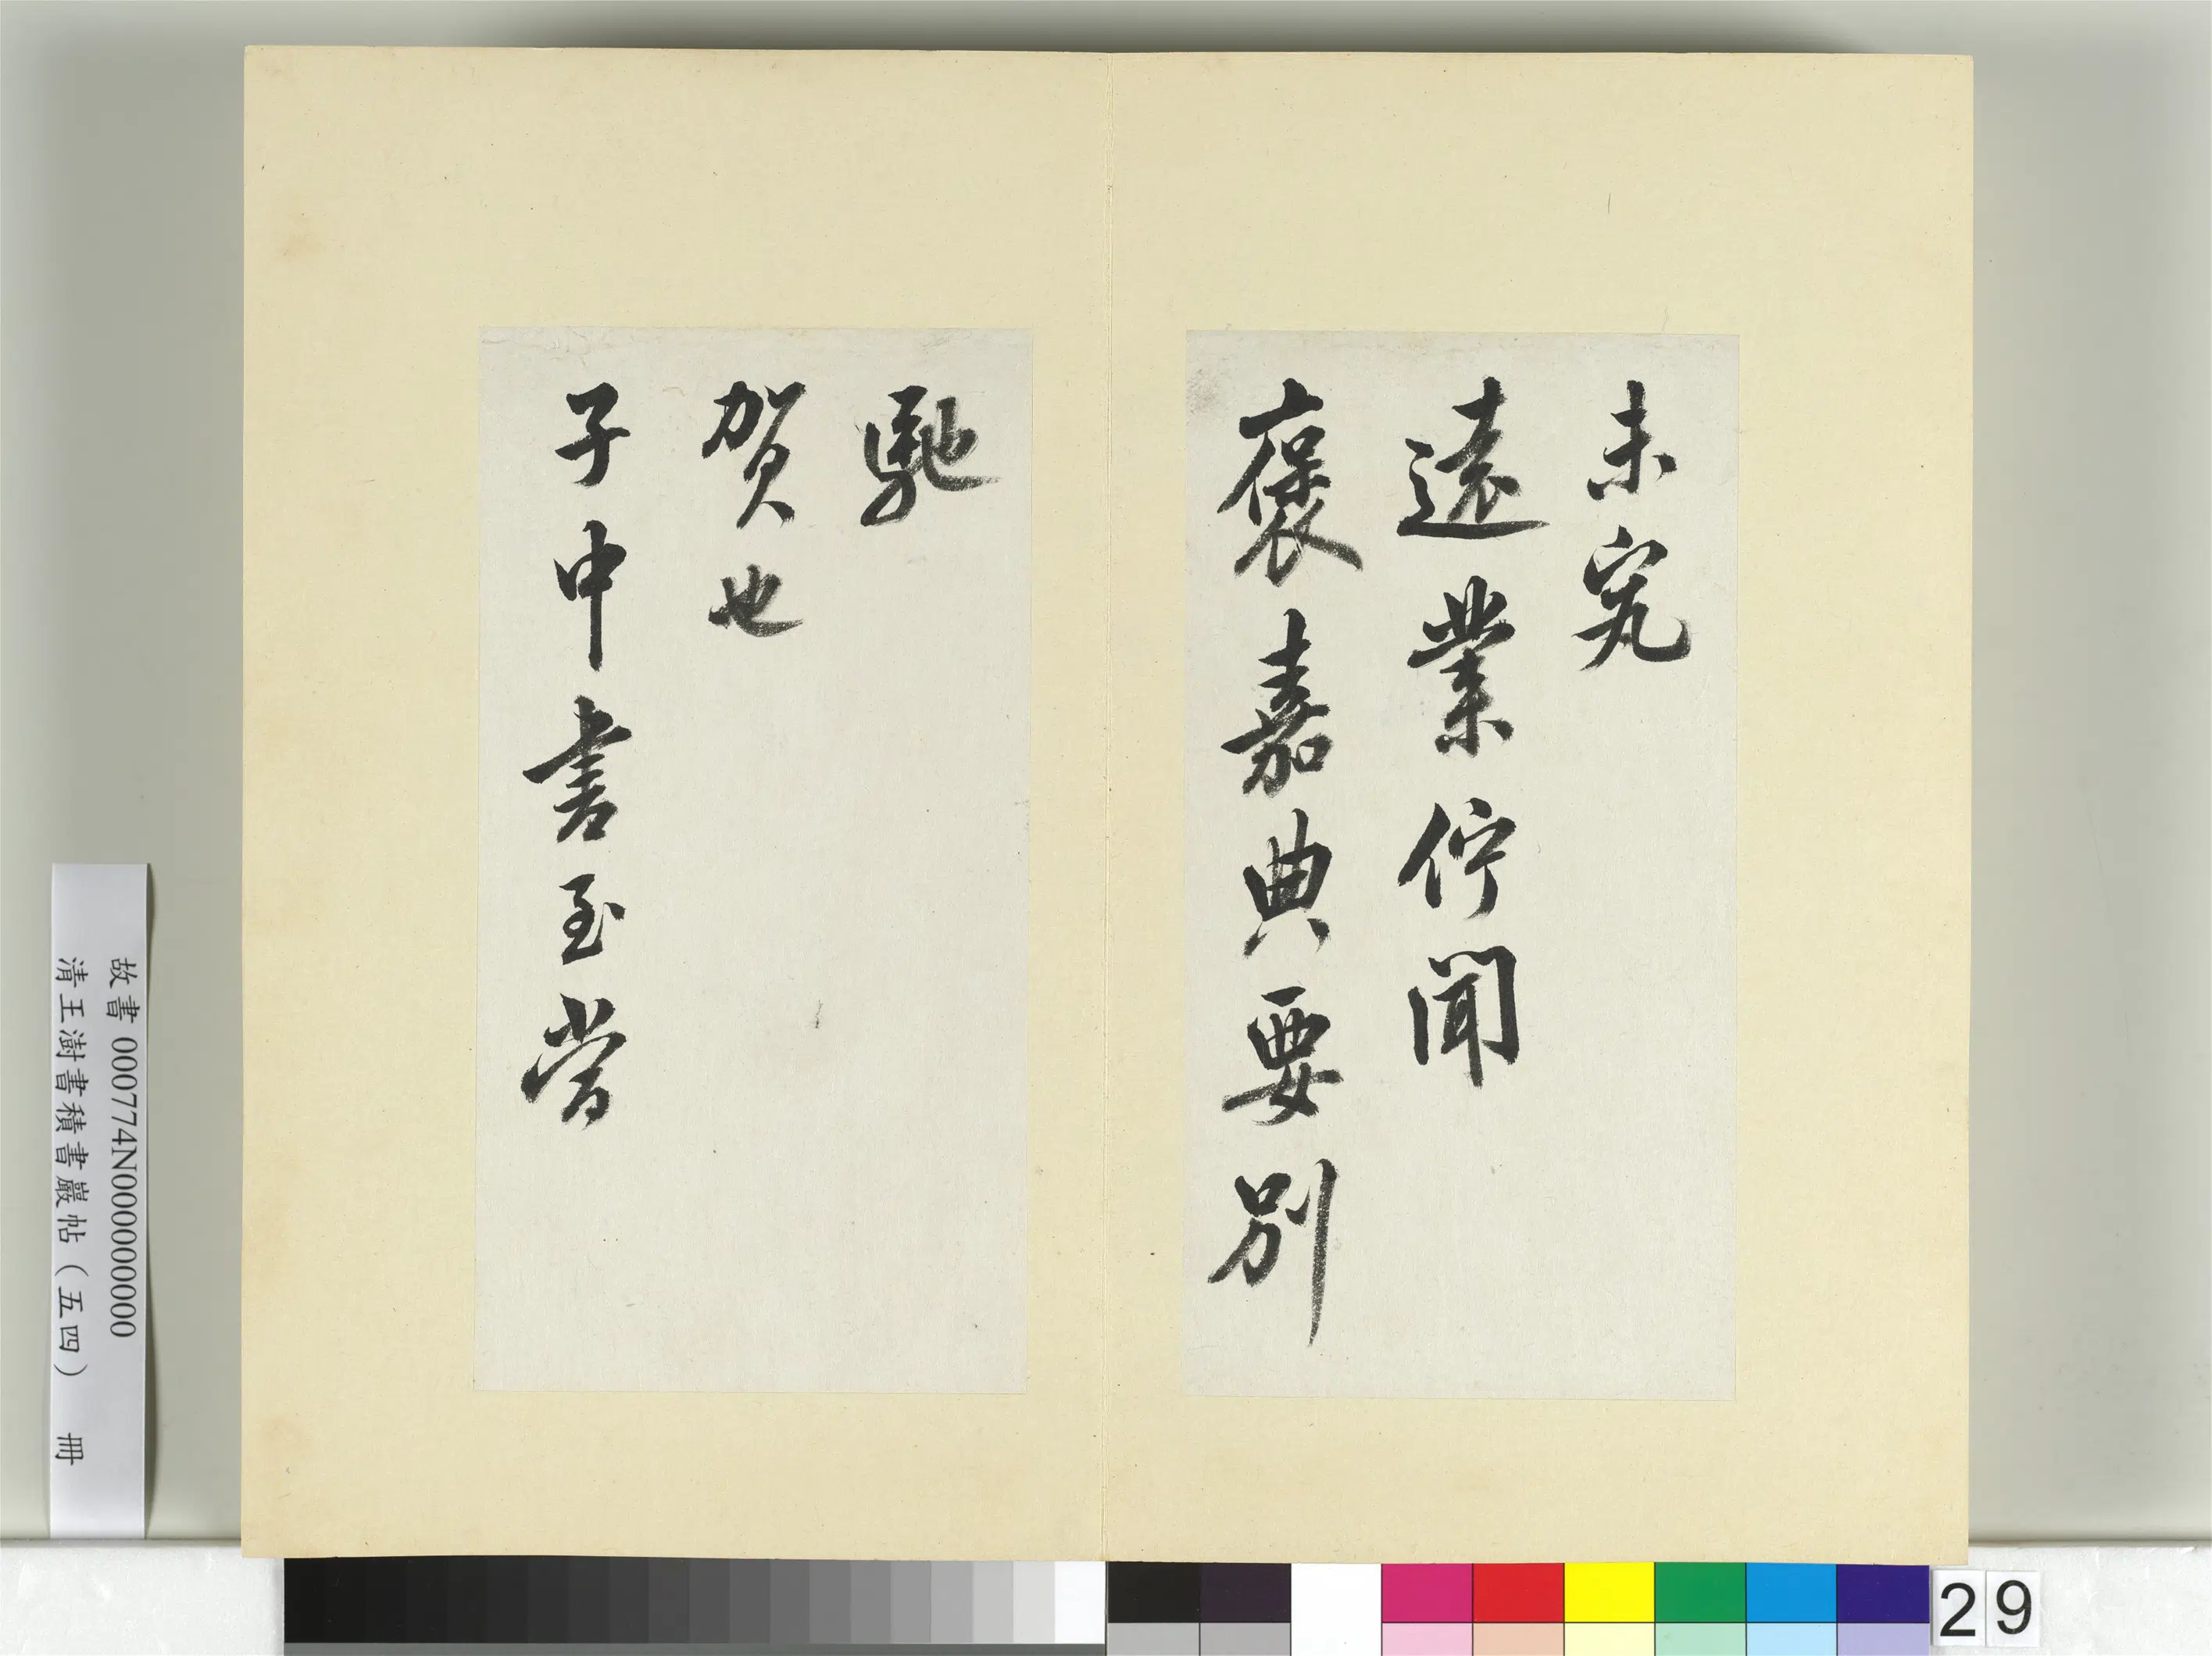 未究
遠業佇聞
褒嘉典要別
馳
賀也
子中書至嘗
故書 000774N000000000
清王澍書積書巖帖（五四） 冊
29